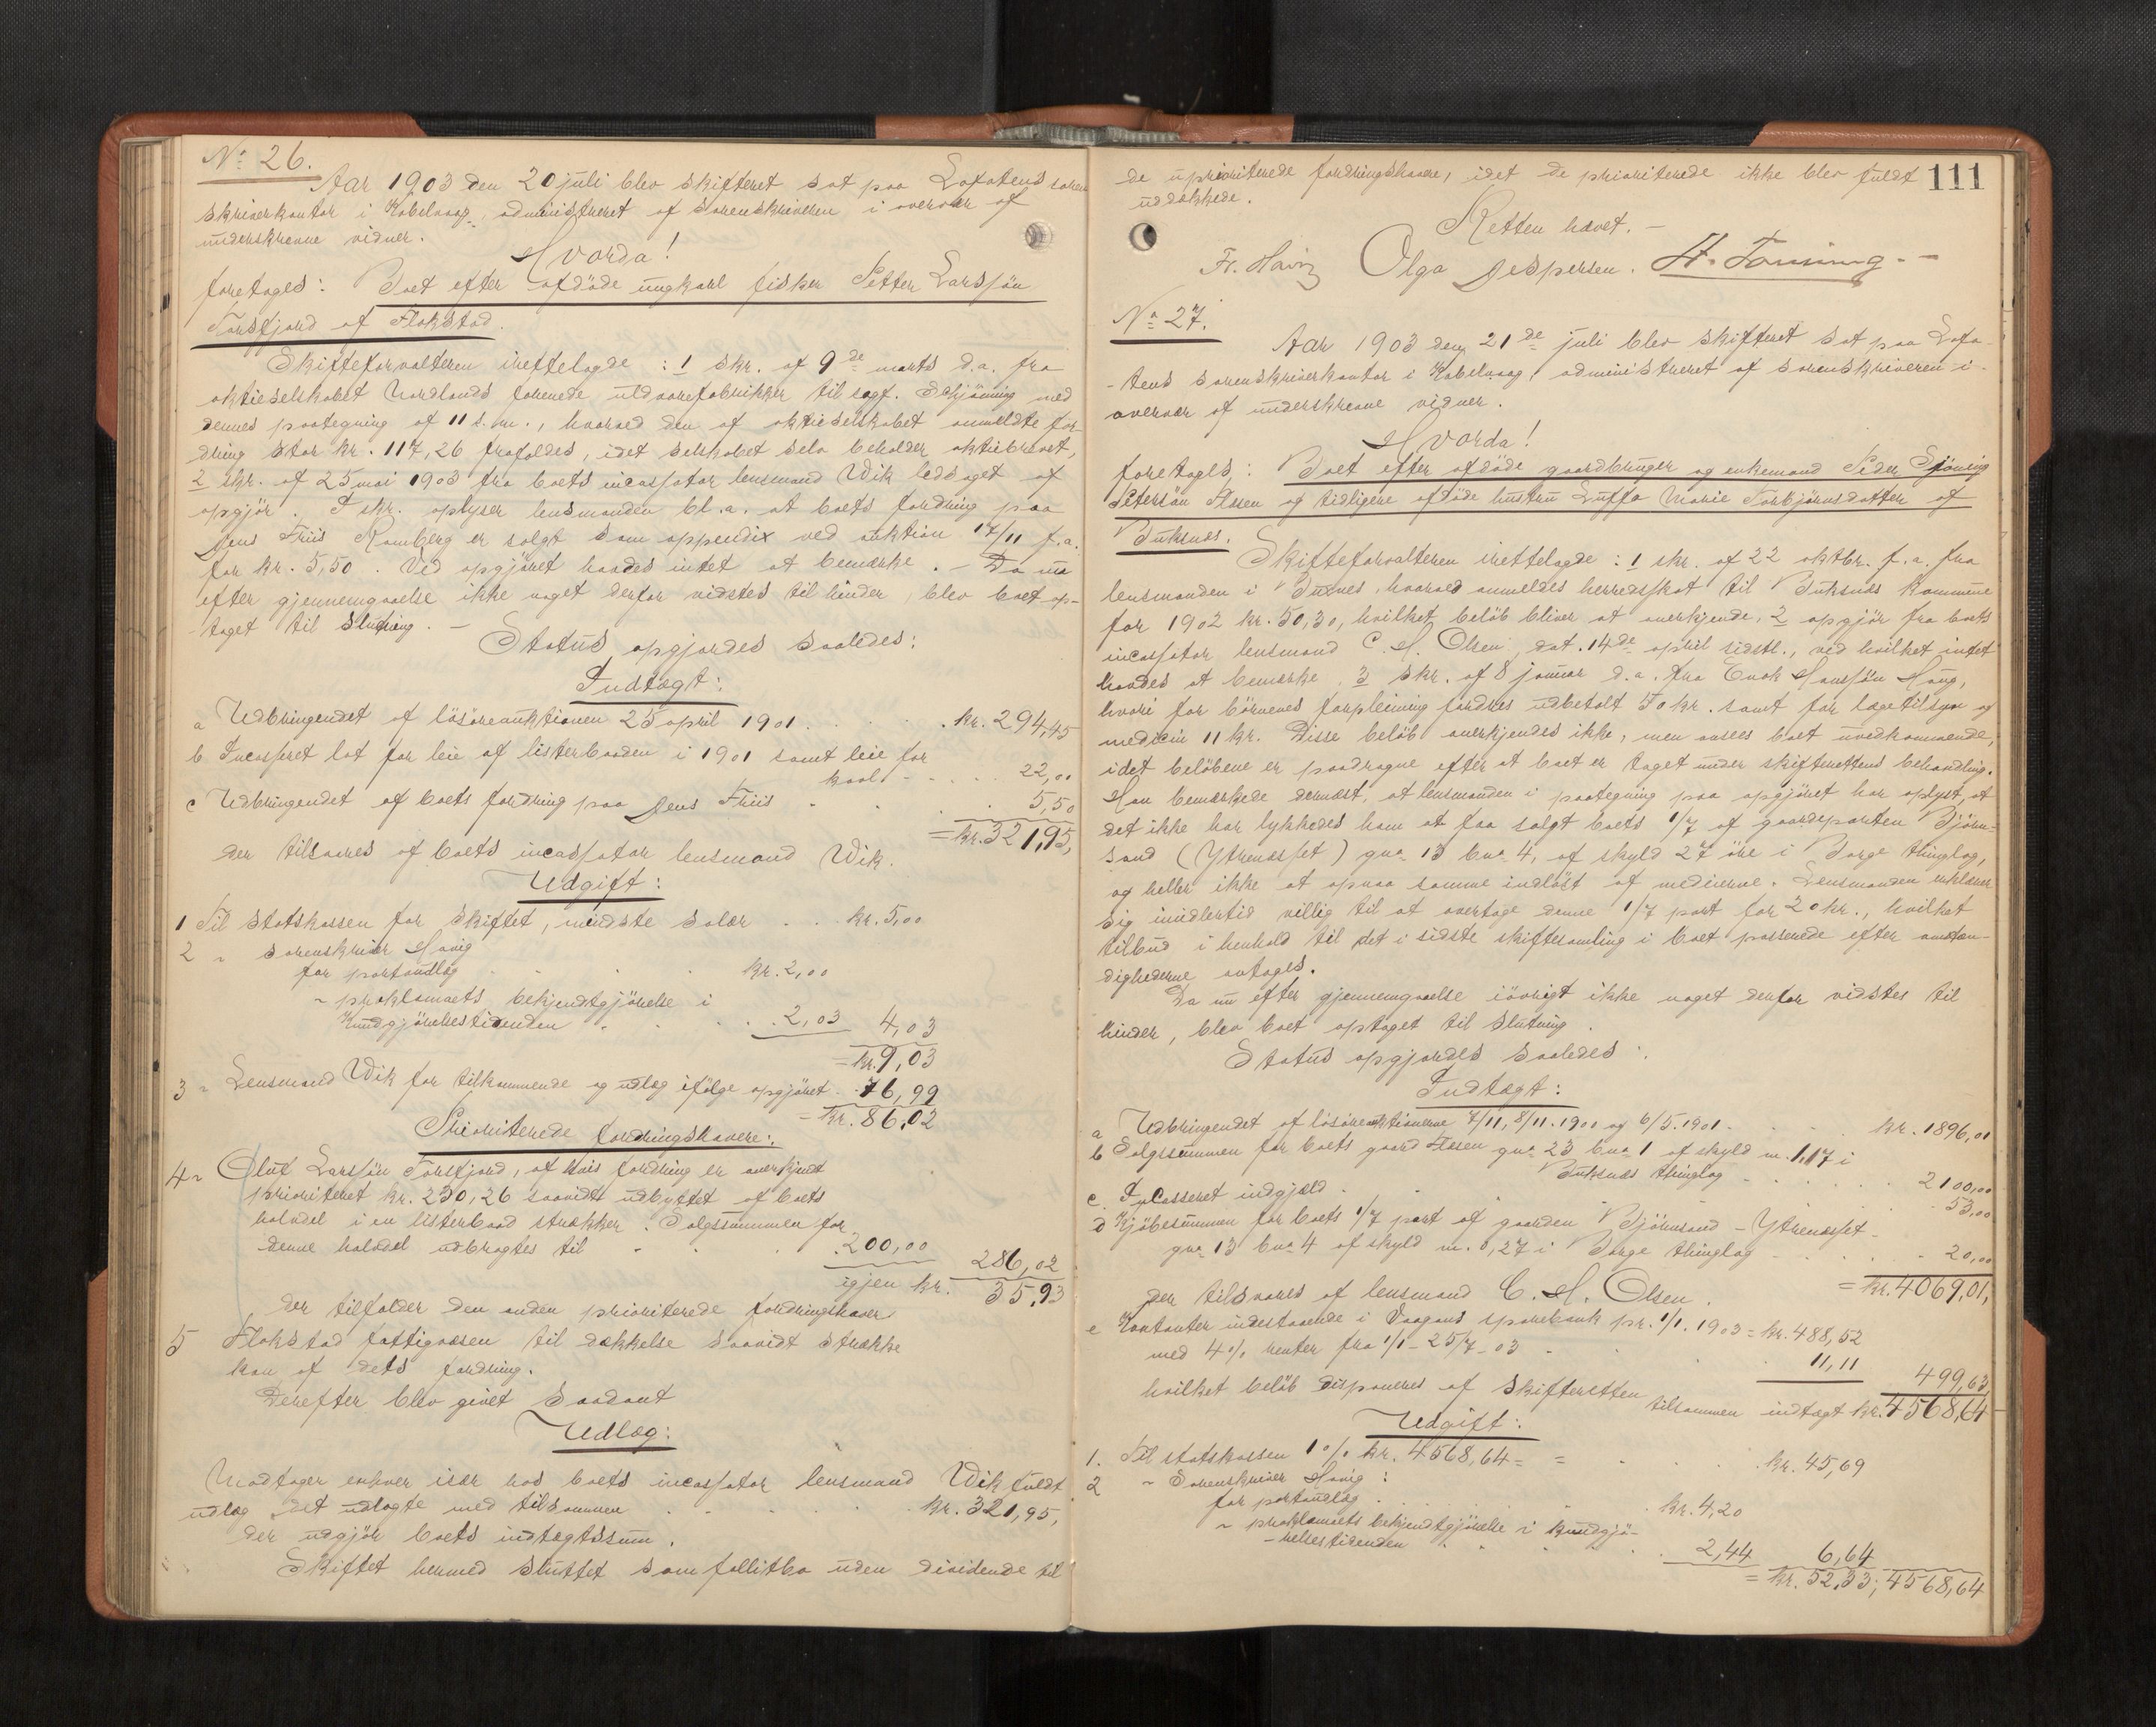 No 26.
Aar 1903 den 20 juli blev skifteret sat paa Lofotens soren
skriverkontor i Kabelvaag, administreret af sorenskriveren i overvær af
underskrevne vidner.
Hvorda!
foretoges: Boet efter afdöde ungkarl fisker Petter Larssön
Torsfjord af Flakstad.
Skifteforvalteren irettelagde: 1 skr. af 9de marts d.a. fra
aktieselskabet Nordlands forenede uldvarefabrikker til sagf. Schjöning med
dennes paategning af 11 s.m., hvorved den af aktieselskabet anmeldte for-
dring stor kr. 117,26 frafaldes, idet selskabet selv beholder aktiebrevet,
2 skr. af 25 mai 1903 fra boets incassator lensmand Wik ledsaget af
opgjör. I skr. oplyser lensmanden bl.a. at boets fordring paa
Jens Friis Ramberg er solgt som appendix ved auktion 17/11 f.a.
for kr. 5,50. Ved opgjöret havdes intet at bemærke. - Da nu
efter gjennemgaaelse ikke noget derfor vidstes til hinder, blev boet op-
taget til slutning. -
Status opgjordes saaledes:
Indtægt:
a Udbringendet af lösöreauktionen 25 april 1901 . . . kr. 294,45
b Incasseret lot for leie af listerbaaden i 1901 samt leie for
kaal - . . . 22,00
c Udbringendet af boets fordring paa Jens Friis . . . 5,50
= kr. 321,95,
der tilsvares af boets incassator lensmand Wik.
Udgift:
1 Til statskassen for skiftet, mindste salær . . kr. 5,00
2 " sorenskriver Havig
for portoudlæg . . . kr. 2,00
" proklamaets bekjendtgjörelse i
Kundgjörelsestidenden . . . 2,03 4,03
= kr. 9,03
3 " Lensmand Wik for tilkommende og udlæg ifölge opgjöret . 76,99
= kr. 86,02
Prioriterede fordringshavere:
4 " Oluf Larssön Torsfjord, af hvis fordring er anerkjendt
prioriteret kr. 230,26 saavidt udbyttet af boets
halvdel i en listerbaad strækker. Salgssummen for
denne halvdel udbragtes til . . 200,00 286,02
igjen kr. 35,93
der tilfalder den anden prioriterede fordringshaver
5 Flakstad fattigvæsen til dækkelse saavidt strække
kan af dets fordring.
Derefter blev givet saadant
Udlæg:
Modtager enhver især hos boets incassator lensmand Wik fuldt
udlæg det udlagte med tilsammen . . . kr. 321,95,
der udgjör boets indtægtssum.
Skiftet hermed sluttet som fallitbo uden dividende til
111
de uprioriterede fordringshavere, idet de prioriterede ikke blev fuldt
uddækkede.
Retten hævet. -
Fr. Havig Olga Jespersen. H. Tønning. -
No 27.
Aar 1903 den 21de juli blev skifteret sat paa Lofo-
-tens sorenskriverkontor i Kabelvaag, administreret af sorenskriveren i
overvær af underskrevne vidner.
Hvorda!
foretoges: Boet efter afdöde gaardbruger og enkemand Peder
Petersön Æsen og tidligere afdöde hustru Marie Torbjörnsdatter af
Buksnæs.
Skifteforvalteren irettelagde: 1 skr. af 22 oktbr. f.a. fra
lensmanden i Buxnes, hvorved anmeldes herredsskat til Buksnæs kommune
for 1902 kr. 50,30, hvilket belöb bliver at anerkjende, 2 opgjör fra boets
incassator lensmand C. H. Olsen, dat. 14de april sidstl., ved hvilket intet
havdes at bemærke, 3 skr. af 8 januar d.a. fra Enok Hanssön Haug,
hvori for börnenes forpleining fordres udbetalt 70 kr. samt for lægetilsyn og
medicin 11 kr. Disse belöb anerkjendes ikke, men ansees boet uvedkommende,
idet belöbene er paadragne efter at boet er taget under skifterettens behandling.
Man bemærkede dernæst, at lensmanden i paategning paa opgjöret har oplyst, at
det ikke har lykkedes ham at faa solgt boets 1/7 af gaardparten Björn-
sand (Ytrenæsset) gno 13 bno 4, af skyld 27 öre i Borge thinglag,
og heller ikke at opnaa samme indlöst af medeierne. Lensmanden erklærer
sig imidlertid villig til at overtage denne 1/7 part for 20 kr., hvilket
tilbud i henhold til det i sidste skiftesamling i boet passerede efter omstæn-
dighederne antoges.
Da nu efter gjennemgaaelse iövrigt ikke noget derfor vidstes til
hinder, blev boet optaget til slutning.
Status opgjordes saaledes:
Indtægt:
a Udbringendet af lösöreauktionerne 7/11, 8/11.1900 og 6/5.1901 . . . kr. 1896,01
b Salgssummen for boets gaard Æsen gno 23 bno 1 af skyld m. 1,17 i
Buksnæs thinglag . . . 2100,00
c. Incasseret indgjæld . . . 53,00
d Kjöbesummen for boets 1/7 part af gaarden Björnsand - Ytrenæsset -
gno 13 bno 4 af skyld m. 0,27 i Borge thinglag . . . 20,00
= kr. 4069,01,
der tilsvares af lensmand C. H. Olsen.
e Kontanter indestaaende i Vaagans sparebank pr. 1/1. 1903 = kr. 488,52
med 4% renter fra 1/1 - 25/7 - 03 . . . 11,11 499,63
hvilket belöb disponeres af skifteretten tilsammen indtægt kr. 4568,64
Udgift:
1. Til statskassen 1% kr. 4568,64 = = . . . kr. 45,69
2 " Sorenskriver Havig:
for portoudlæg . . . kr. 4,20
" proklamaets bekjendtgjörelse i Kundgjö-
-relsestidenden . . . 2,44 6,64
= kr. 52,33; 4568,64